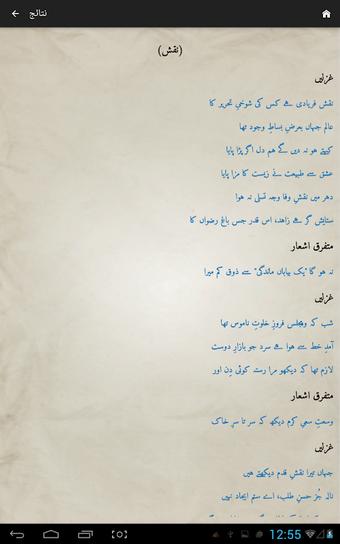 نتائج
(نقش)
غزلیں
نقش فریادی ہے کس کی شوخیِ تحریر کا
عالم جہاں بعرضِ بساطِ وجود تھا
کہتے ہو نہ دیں گے ہم دل اگر پڑا پایا
عشق سے طبیعت نے زیست کا مزا پایا
دہر میں نقشِ وفا وجہ تسلی نہ ہوا
ستایش گر ہے زاہد، اس قدر جس باغِ رضواں کا
متفرق اشعار
نہ ہو گا "یک بیاباں ماندگی" سے ذوق کم میرا
غزلیں
شب کہ وہ مجلس فروزِ خلوتِ ناموس تھا
آمدِ خط سے ہوا ہے سرد جو بازارِ دوست
لازم تھا کہ دیکھو مرا رستہ کوئی دِن اور
متفرق اشعار
وسعتِ سعیِ کرم دیکھ کہ سر تا سرِ خاک
غزلیں
جہاں تیرا نقشِ قدم دیکھتے ہیں
نالہ جُز حسنِ طلب، اے ستم ایجاد نہیں
12:55